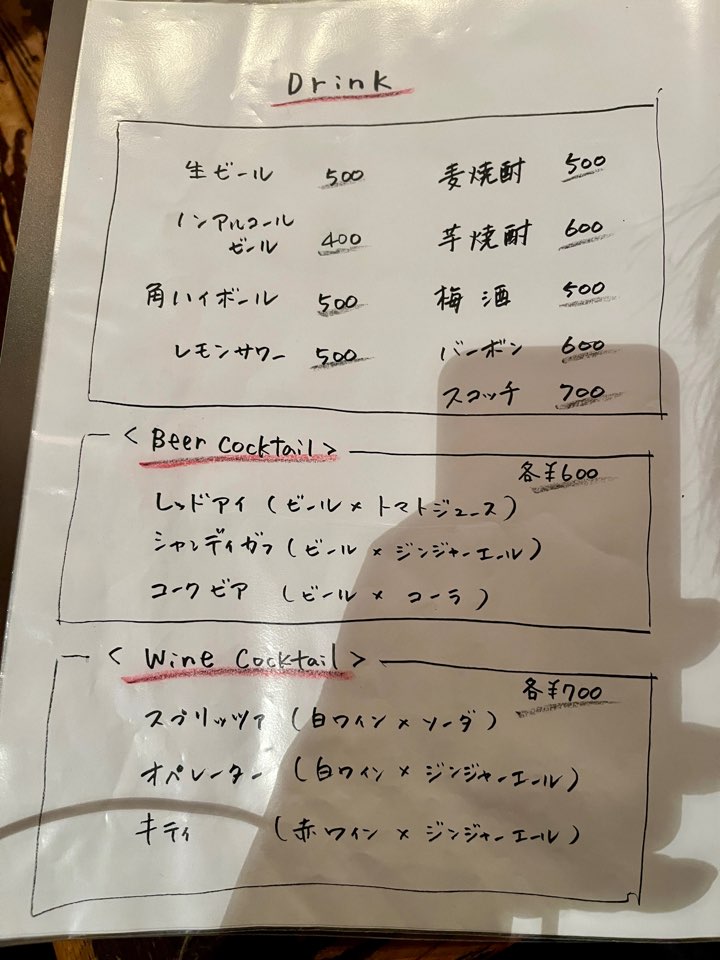 Drink
生ビール 500
麦焼酎 500
ノンアルコール
ビール 400
芋焼酎 600
角ハイボール 500
梅酒 500
レモンサワー 500
バーボン 600
スコッチ 700
<Beer Cocktail>
各¥600
レッドアイ (ビール×トマトジュース)
シャンディガフ(ビール×ジンジャーエール)
コークビア (ビール×コーラ)
<Wine Cocktail>
各¥700
スプリッツァ (白ワイン×ソーダ)
オペレーター (白ワイン×ジンジャーエール)
キティ (赤ワイン×ジンジャーエール)